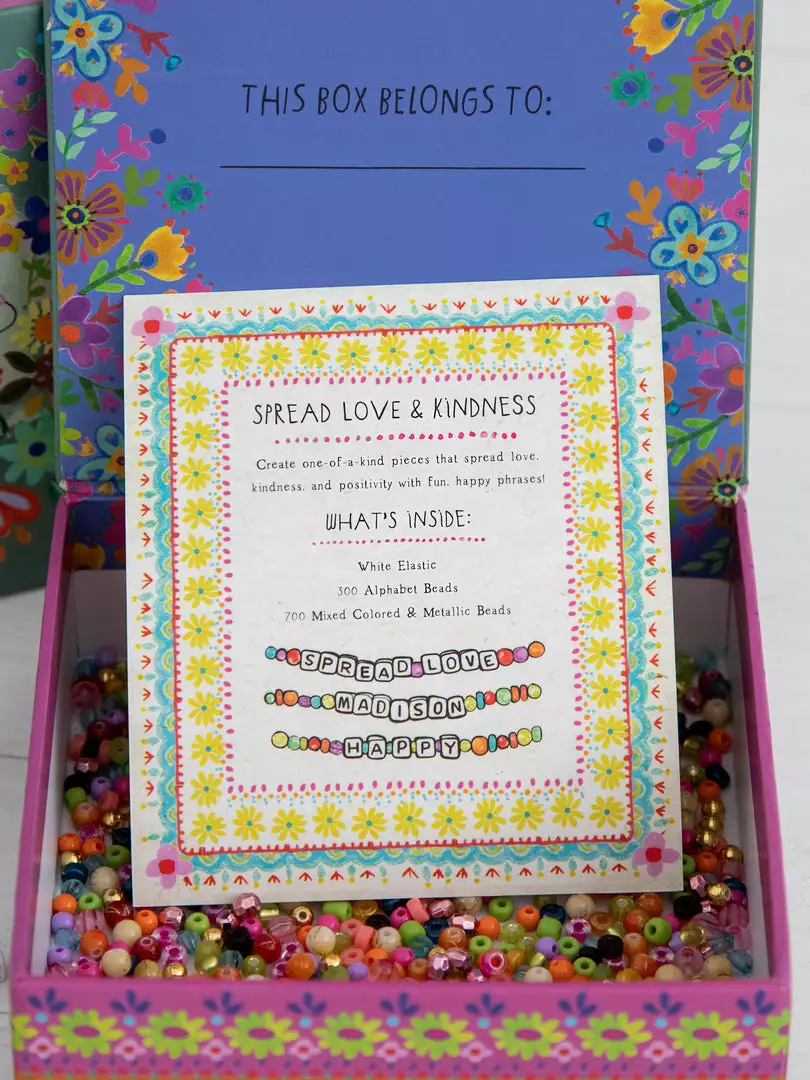 THIS BOX BELONGS TO:
SPREAD LOVE & KINDNESS
Create one-of-a-kind pieces that spread love,
kindness, and positivity with fun, happy phrases!
WHAT'S INSIDE:
White Elastic
300 Alphabet Beads
700 Mixed Colored & Metallic Beads
SPREAD LOVE
MADISON
HAPPY